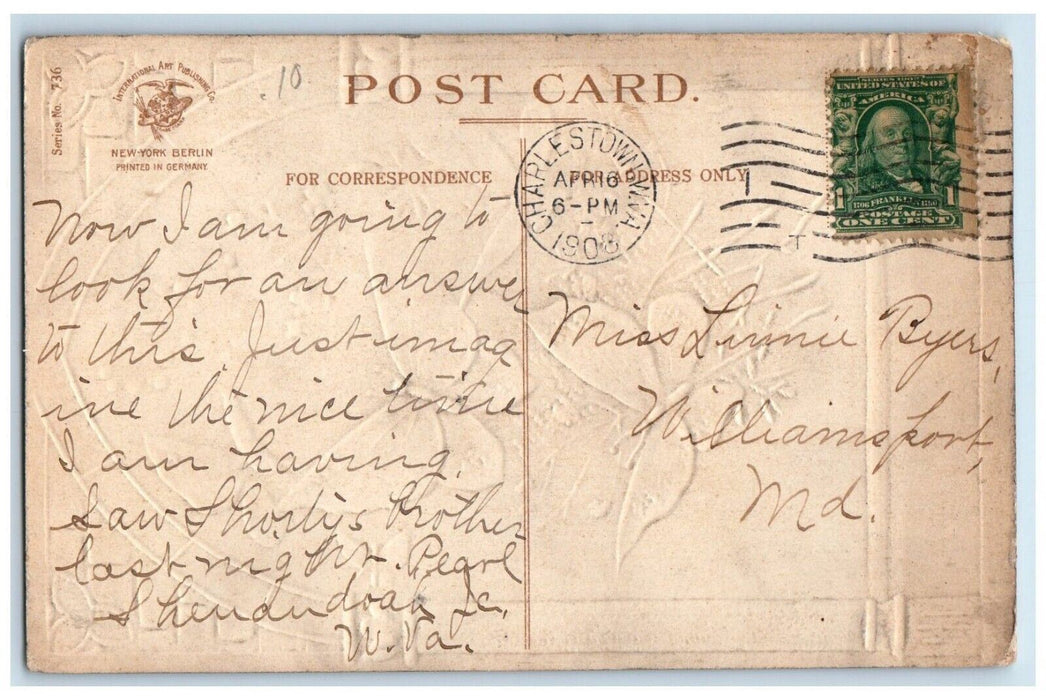 Series No. 736
INTERNATIONAL ART PUBLISHING Co.
NEW-YORK BERLIN
PRINTED IN GERMANY
10
POST CARD.
FOR CORRESPONDENCE
FOR ADDRESS ONLY
CHARLESTOWN W.VA.
APR 16
6-PM
1908
SERIES 1902
UNITED STATES OF
AMERICA
1706 FRANKLIN 1790
1 1
POSTAGE
ONE CENT
Now I am going to
look for an answer
to this. Just imag
ine the nice time
I am having.
Saw Shorty's brother
last night. Pearl
Shenandoah Jc.
W. Va.
Miss Linnie Byers,
Williamsport,
Md.